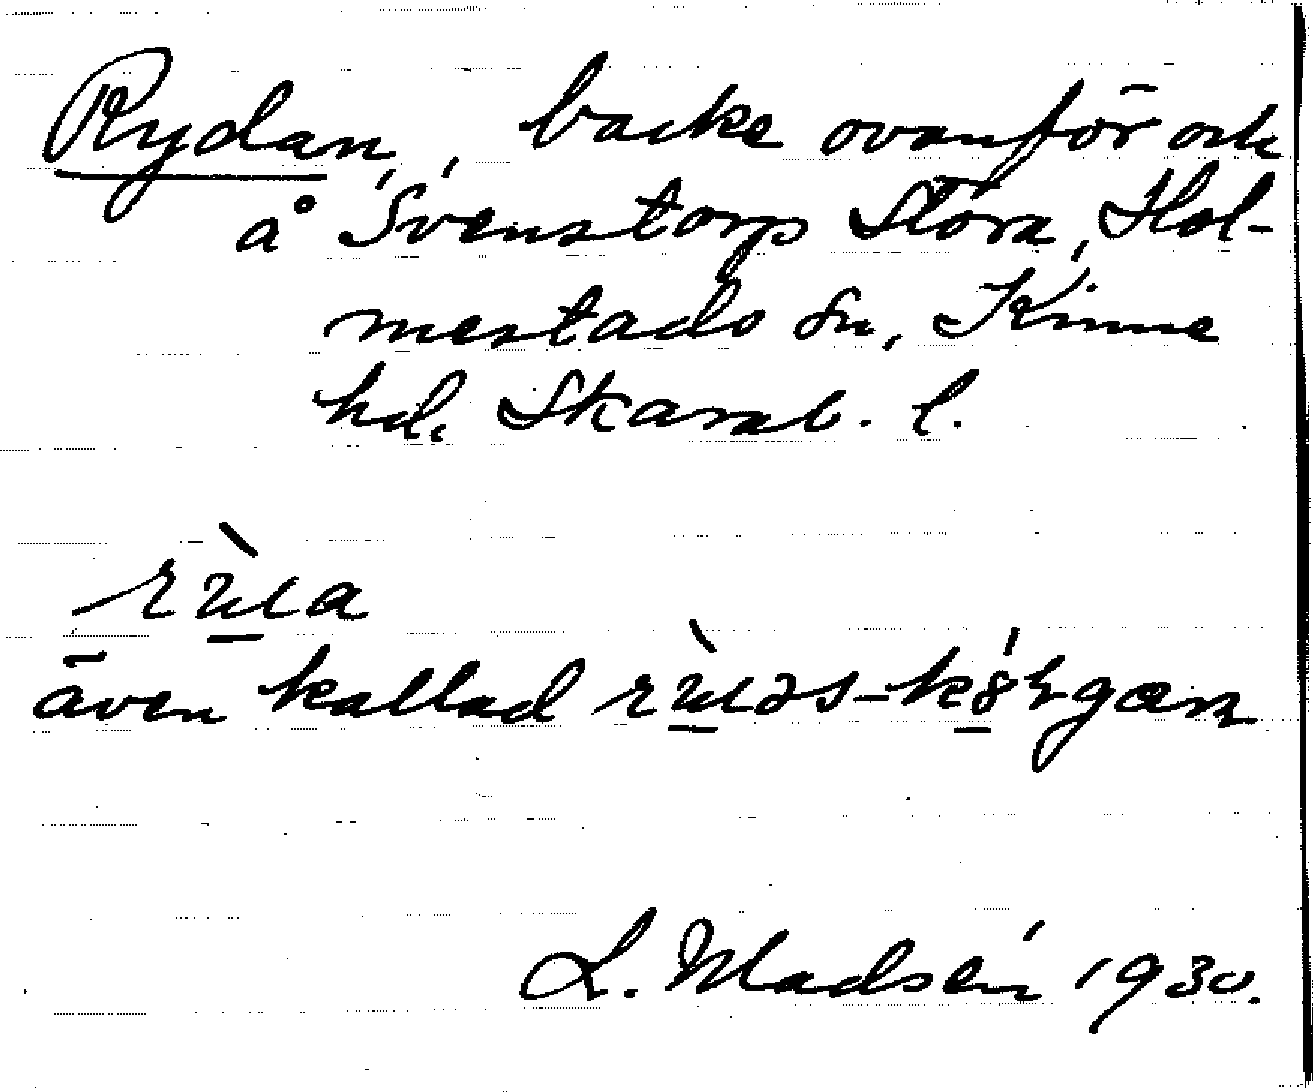 Rydan, backe ovanför och
å Svenstorp Stora, Hol-
mestads sn, Kinne
hd, Skarab. l.
även kallad
L. Madsén 1930.